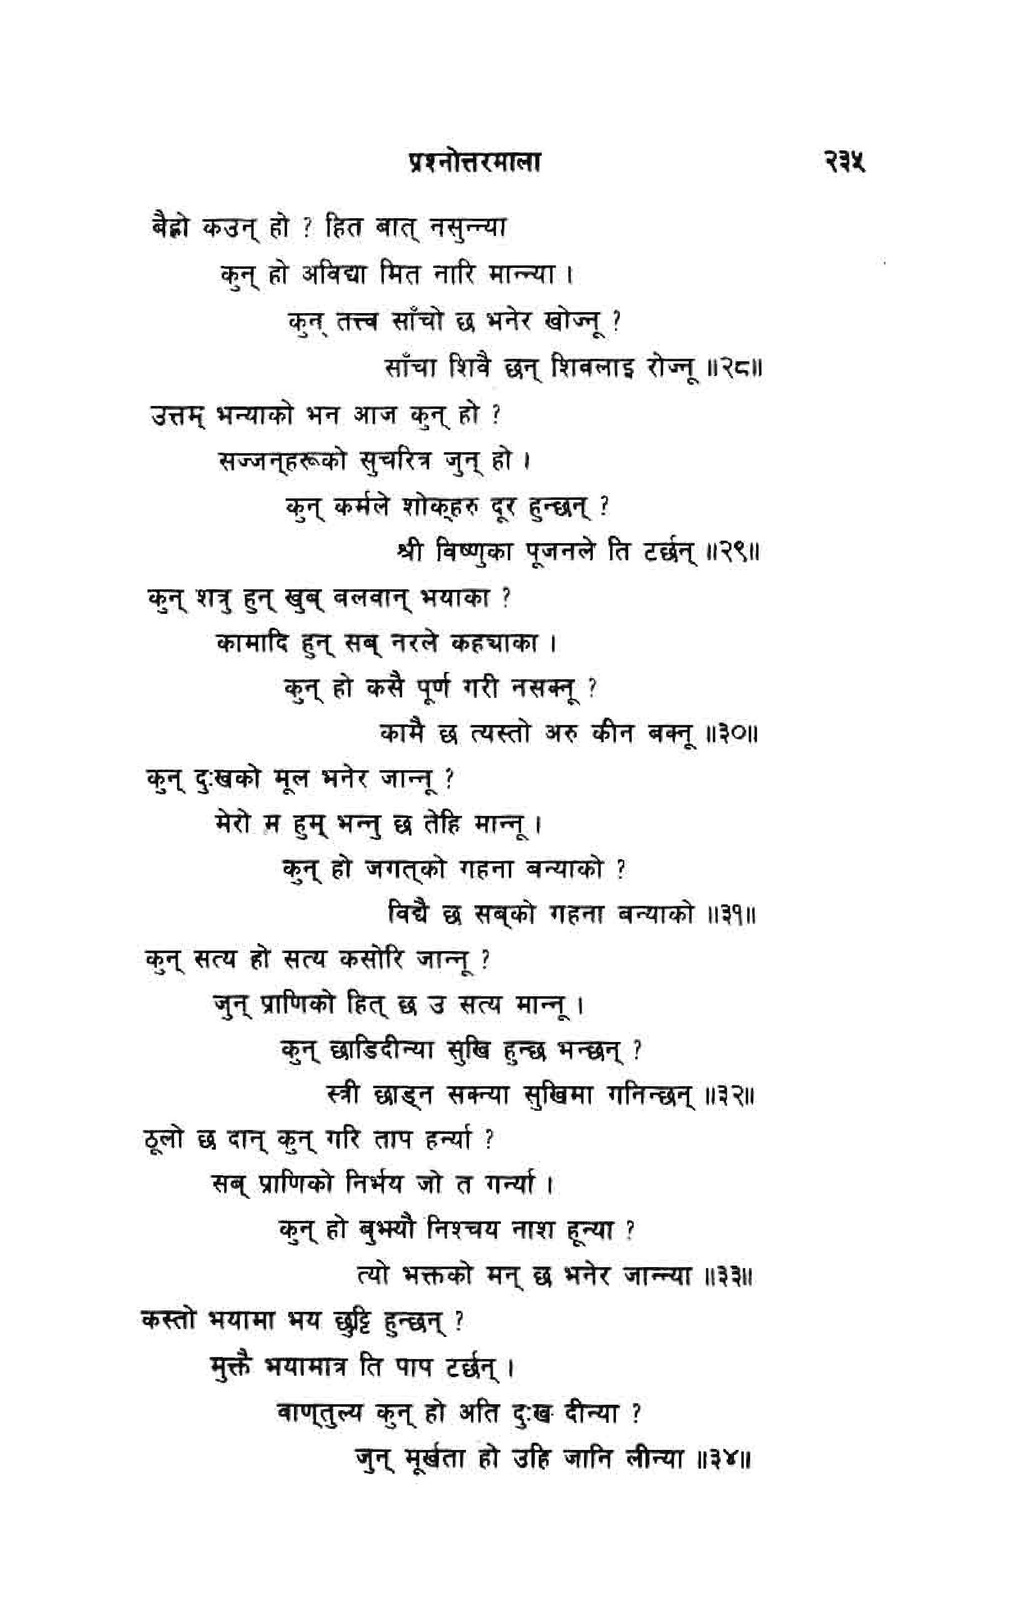 प्रश्नोत्तरमाला २३५
बैह्रो कउन् हो ? हित बात् नसुन्न्या
कुन् हो अविद्या मित नारि मान्न्या ।
कुन् तत्त्व साँचो छ भनेर खोज्नू ?
साँचा शिवै छन् शिवलाइ रोज्नू ॥२८॥
उत्तम् भन्याको भन आज कुन् हो ?
सज्जन्‌हरूको सुचरित्र जुन् हो ।
कुन् कर्मले शोक्‌हरु दूर हुन्छन् ?
श्री विष्णुका पूजनले ति टर्छन् ॥२९॥
कुन् शत्रु हुन् खुब् बलवान् भयाका ?
कामादि हुन् सब् नरले कह्याका ।
कुन् हो कसै पूर्ण गरी नसक्नू ?
कामै छ त्यस्तो अरु कीन बक्नू ॥३०॥
कुन् दुःखको मूल भनेर जान्नू ?
मेरो म हुम् भन्नु छ तेहि मान्नू ।
कुन् हो जगत्‌को गहना बन्याको ?
विद्यै छ सब्‌को गहना बन्याको ॥३१॥
कुन् सत्य हो सत्य कसोरि जान्नू ?
जुन् प्राणिको हित् छ उ सत्य मान्नू ।
कुन् छाडिदीन्या सुखि हुन्छ भन्छन् ?
स्त्री छाड्न सक्न्या सुखिमा गनिन्छन् ॥३२॥
ठूलो छ दान् कुन् गरि ताप हर्न्या ?
सब् प्राणिको निर्भय जो त गर्न्या ।
कुन् हो बुझ्यौ निश्चय नाश हून्या ?
त्यो भक्तको मन् छ भनेर जान्न्या ॥३३॥
कस्तो भयामा भय छुट्टि हुन्छन् ?
मुक्तै भयामात्र ति पाप टर्छन् ।
वाण्‌तुल्य कुन् हो अति दुःख दीन्या ?
जुन् मूर्खता हो उहि जानि लीन्या ॥३४॥